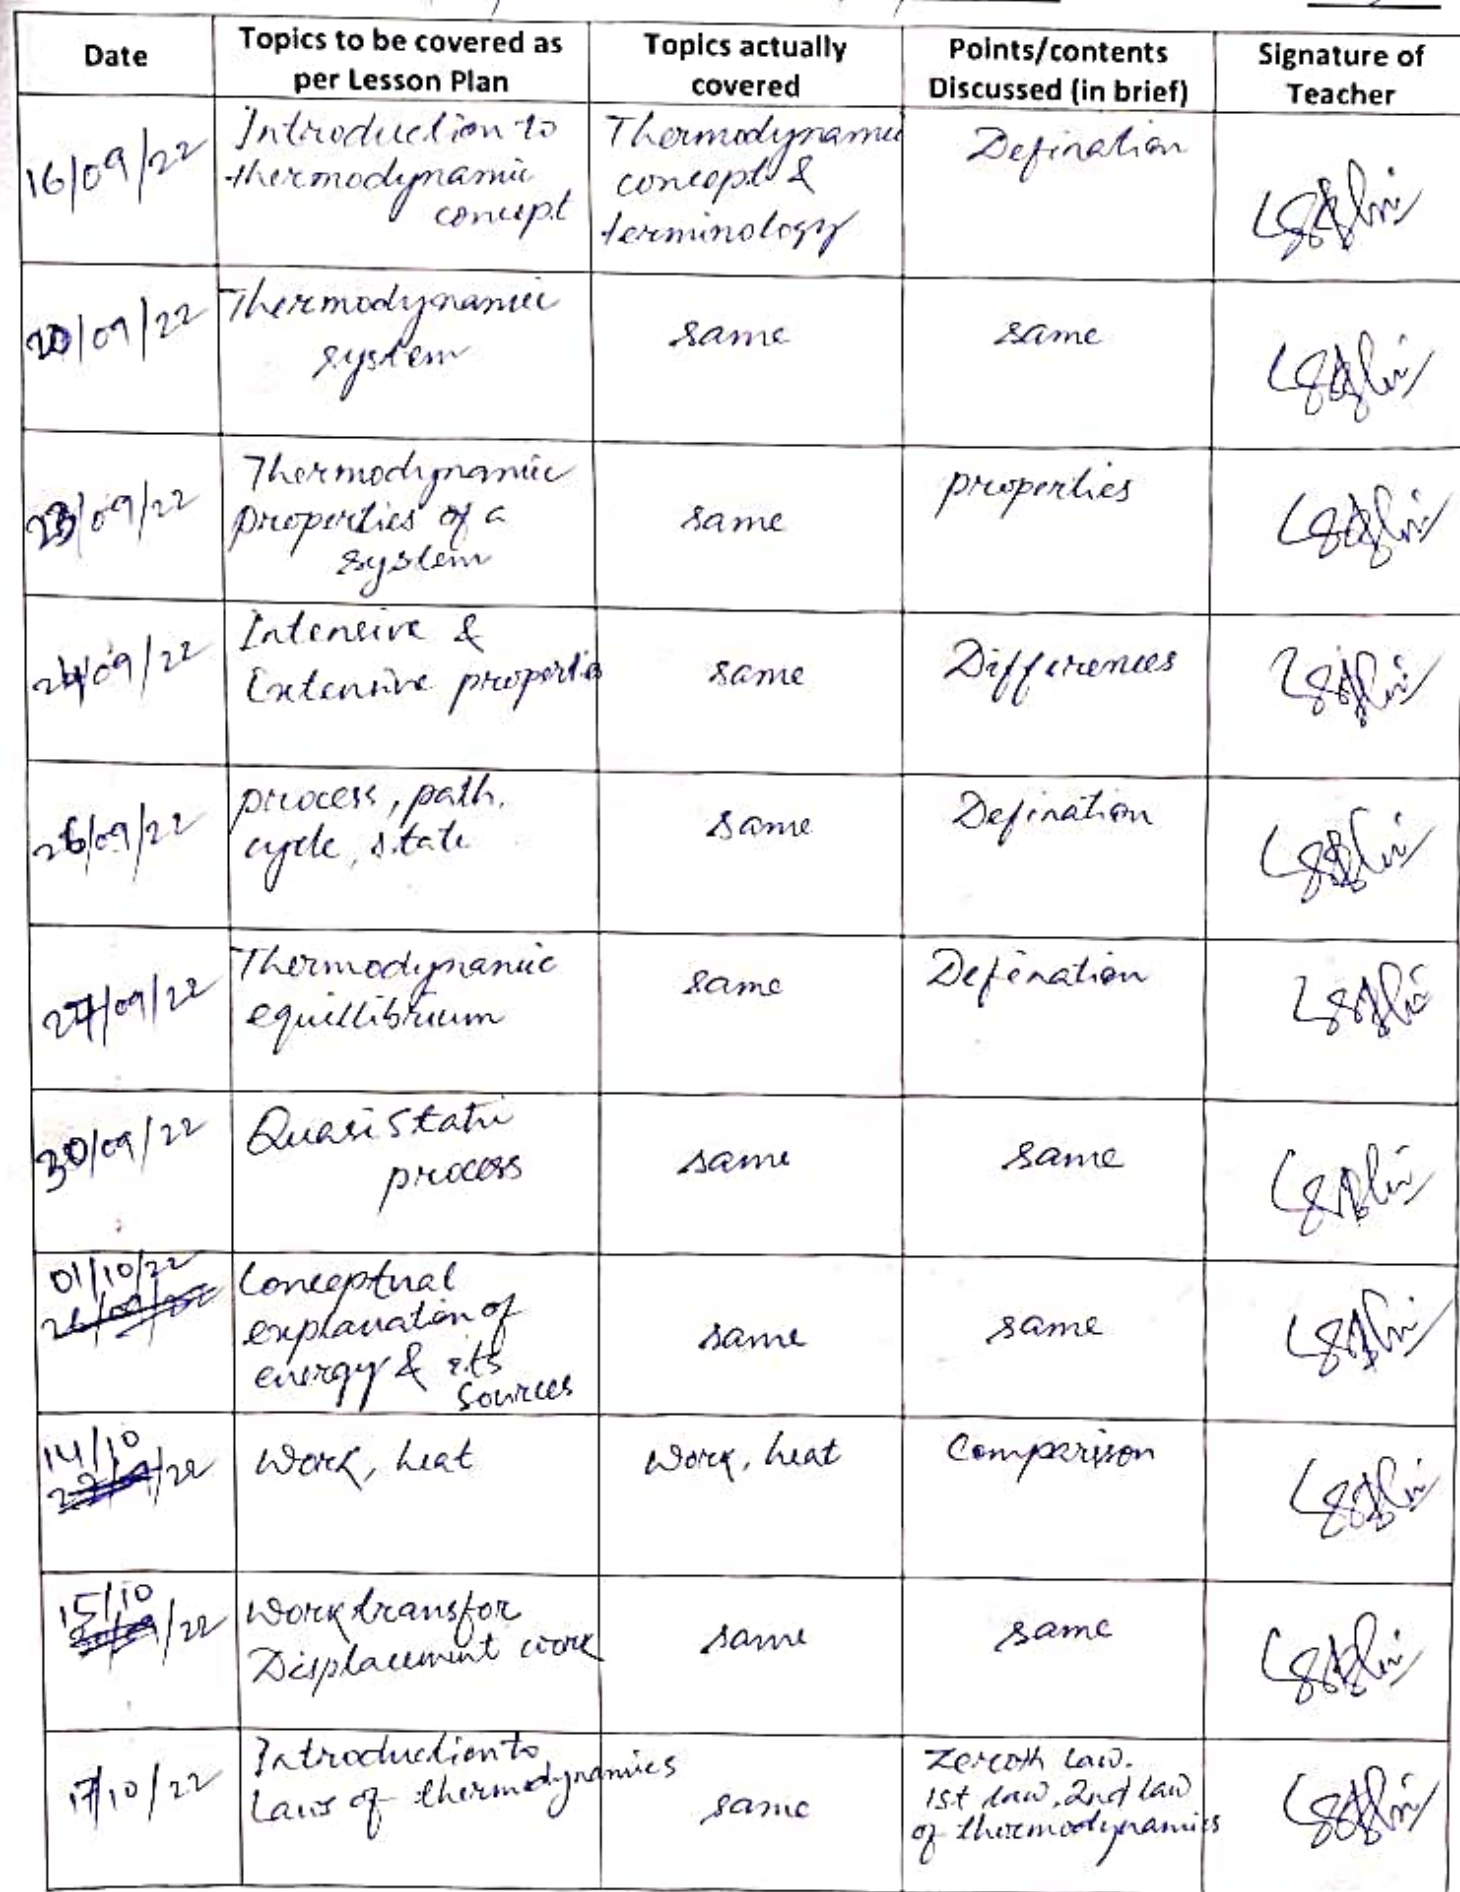 Date
Topics to be covered as
per Lesson Plan
Topics actually
covered
Points/contents
Discussed (in brief)
Signature of
Teacher
16/09/22
Introduction to
thermodynamic
concept
Thermodynamic
concept &
terminology
Defination
20/09/22
Thermodynamic
system
same
same
23/09/22
Thermodynamic
properties of a
system
same
properties
24/09/22
Intensive &
Extensive properties
same
Differences
26/09/22
process, path,
cycle, state
same
Defination
27/09/22
Thermodynamic
equillibrium
same
Defination
30/09/22
Quasi Static
process
same
same
01/10/22
Conceptual
explanation of
energy & its
Sources
same
same
14/10
/22
Work, heat
Work, heat
Comparison
15/10
/22
Work transfer
Displacement work
same
same
17/10/22
Introduction to
Laws of thermodynamics
same
Zeroth Law.
1st law, 2nd law
of thermodynamics